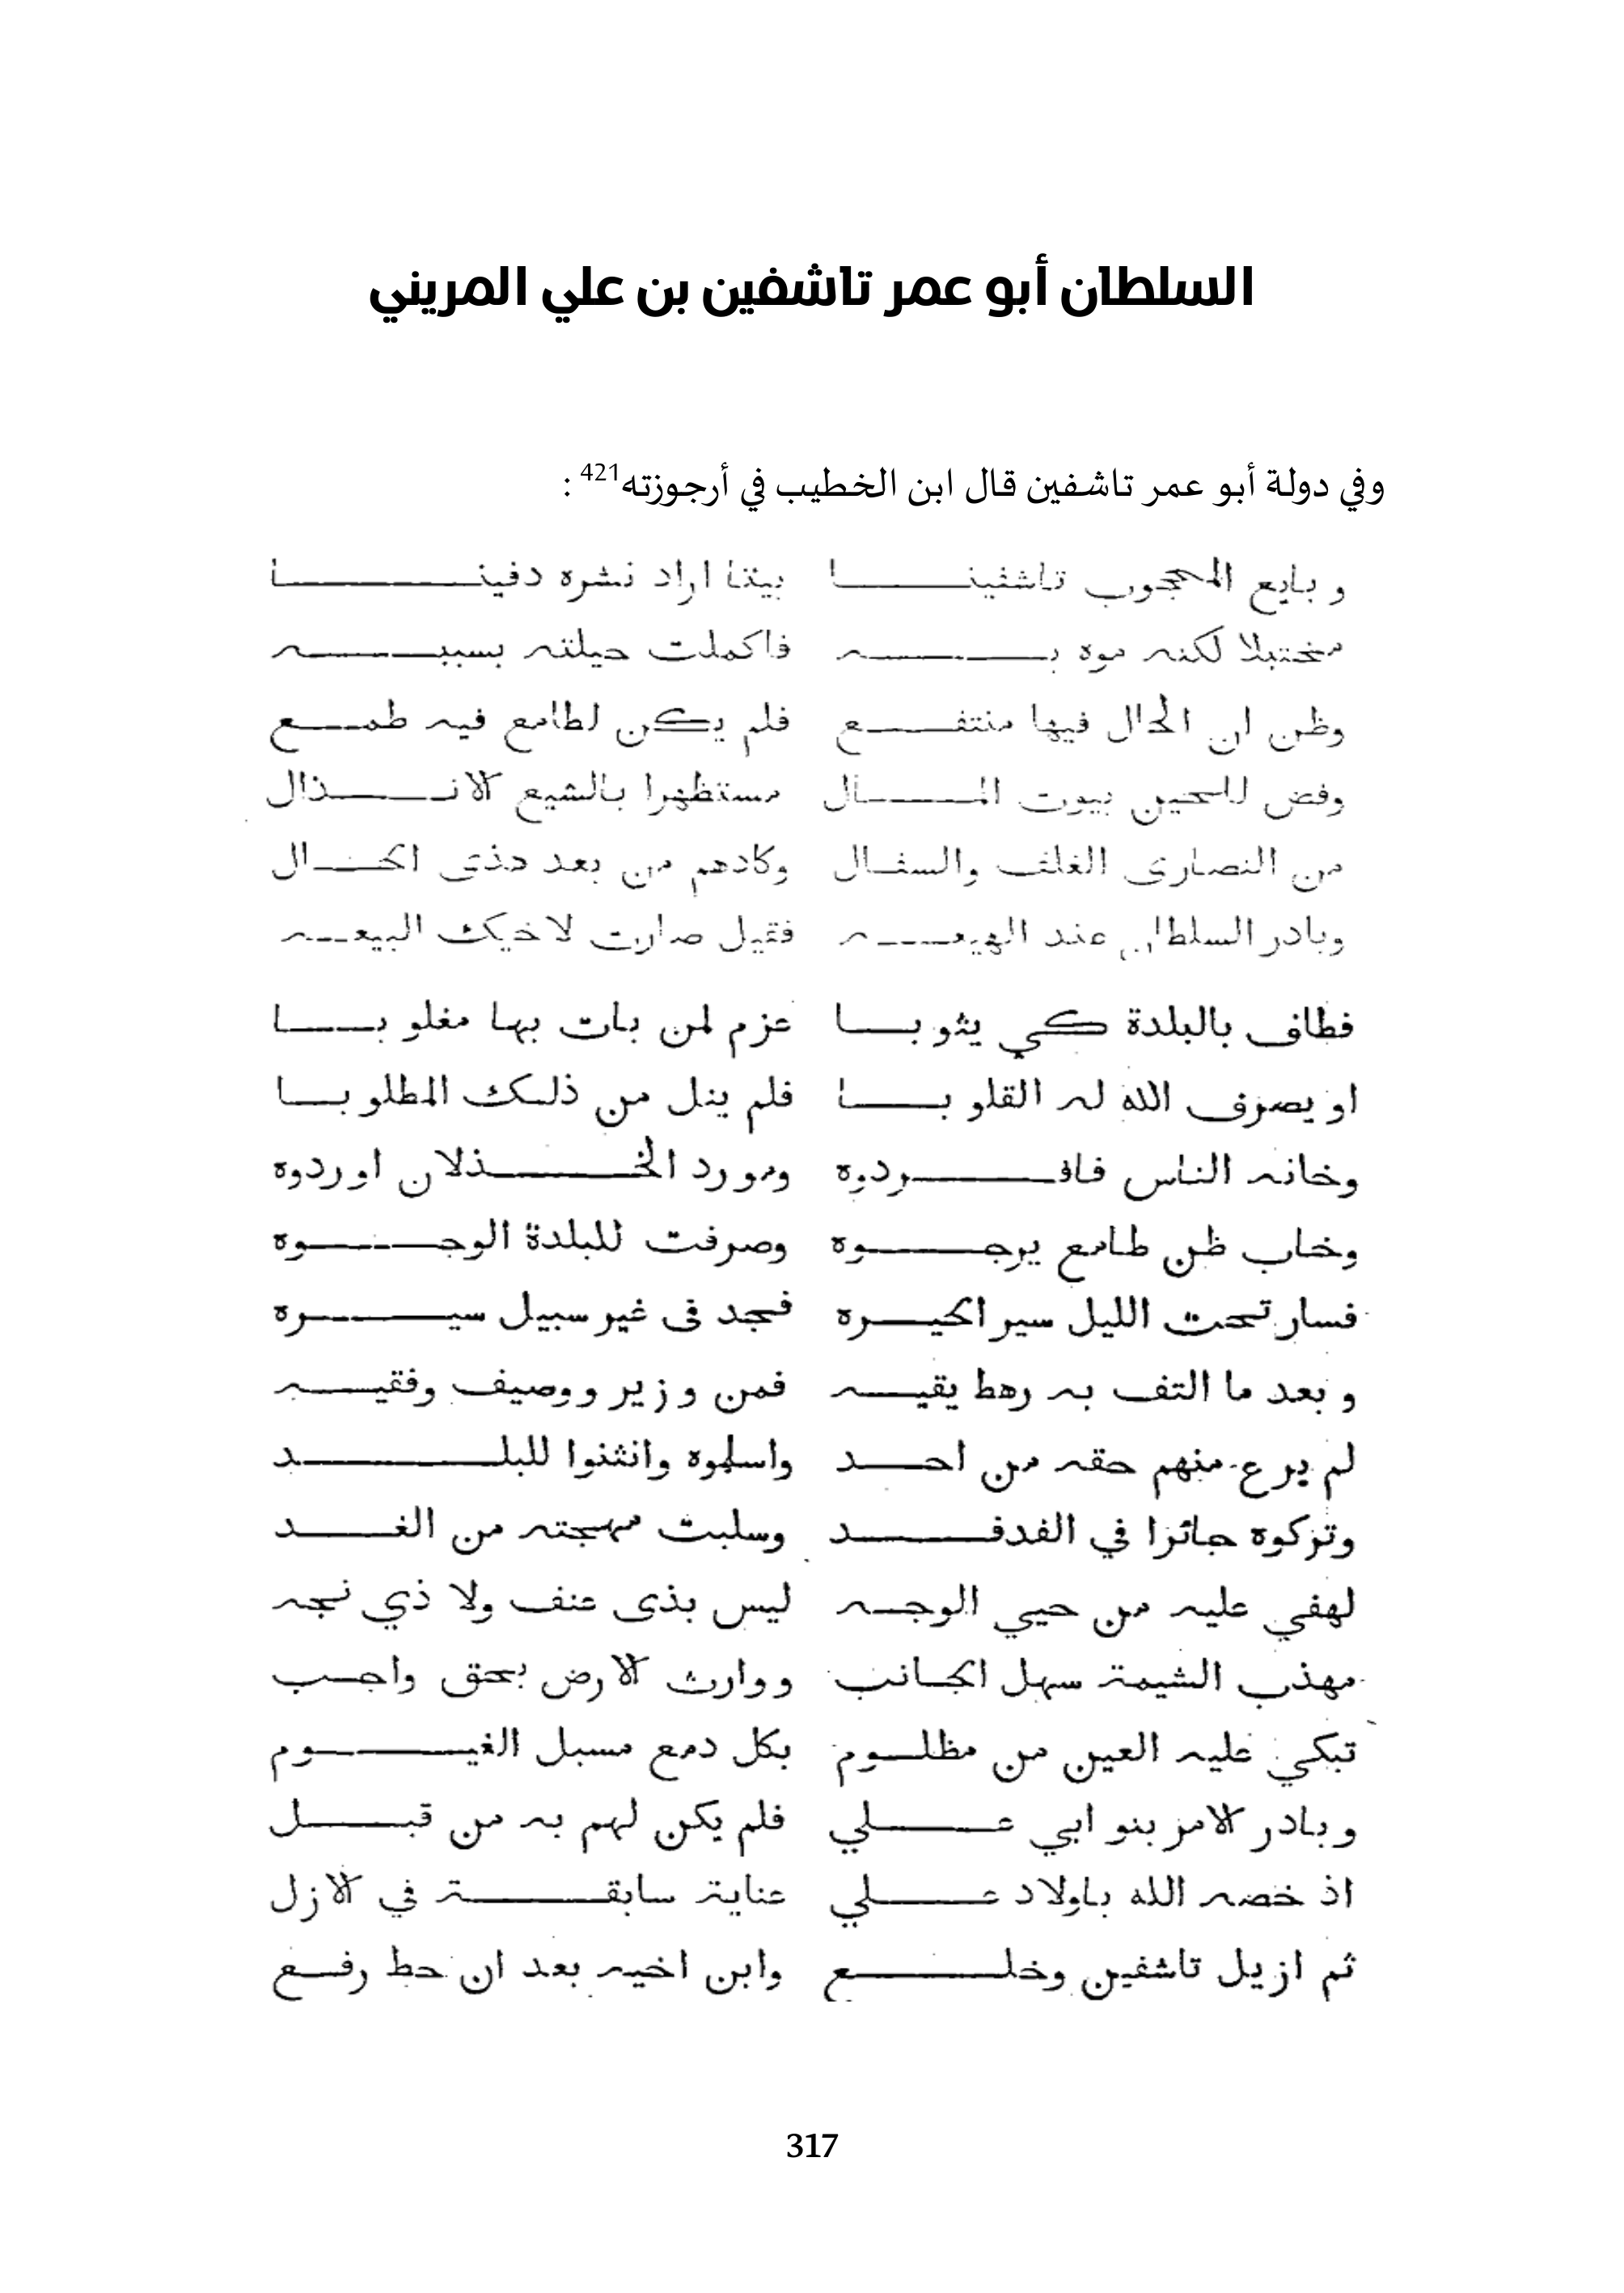 السلطان أبو عمر تاشفين بن علي المريني
وفي دولة أبو عمر تاشفين قال ابن الخطيب في أرجوزته421 :
و بايع المحجوب تاشفينا بيتا اراد نشره دفينا
مختبلا لكنه موه به فاكملت حيلته بسببه
وظن ان الحال فيها منتفع فلم يكن لطامع فيه طمع
وفض للحين بيوت المال مستظهرا بالشيع الانذال
من النصارى الغلف والسفال وكادهم من بعد هذى الحال
وبادر السلطان عند الهيعه فقيل صارت لاخيك البيعه
فطاف بالبلدة كي يثوبا عزم لمن بات بها مغلوبا
او يصرف الله له القلوبا فلم ينل من ذلك المطلوبا
وخانه الناس فافردوه ومورد الخذلان اوردوه
وخاب ظن طامع يرجوه وصرفت للبلدة الوجوه
فسار تحت الليل سير الحيره فجد فى غير سبيل سيره
و بعد ما التف به رهط يقيه فمن وزير ووصيف وفقيه
لم يرع منهم حقه من احد واسلموه وانثنوا للبلد
وتركوه جائرا في الفدفد وسلبت مهجته من الغد
لهفي عليه من حيي الوجه ليس بذى عنف ولا ذي نجه
مهذب الشيمة سهل الجانب ووارث الارض بحق واجب
تبكي عليه العين من مظلوم بكل دمع مسبل الغيوم
وبادر الامر بنو ابي علي فلم يكن لهم به من قبل
اذ خصه الله باولاد علي عناية سابقة في الازل
ثم ازيل تاشفين وخلع وابن اخيه بعد ان حط رفع
317